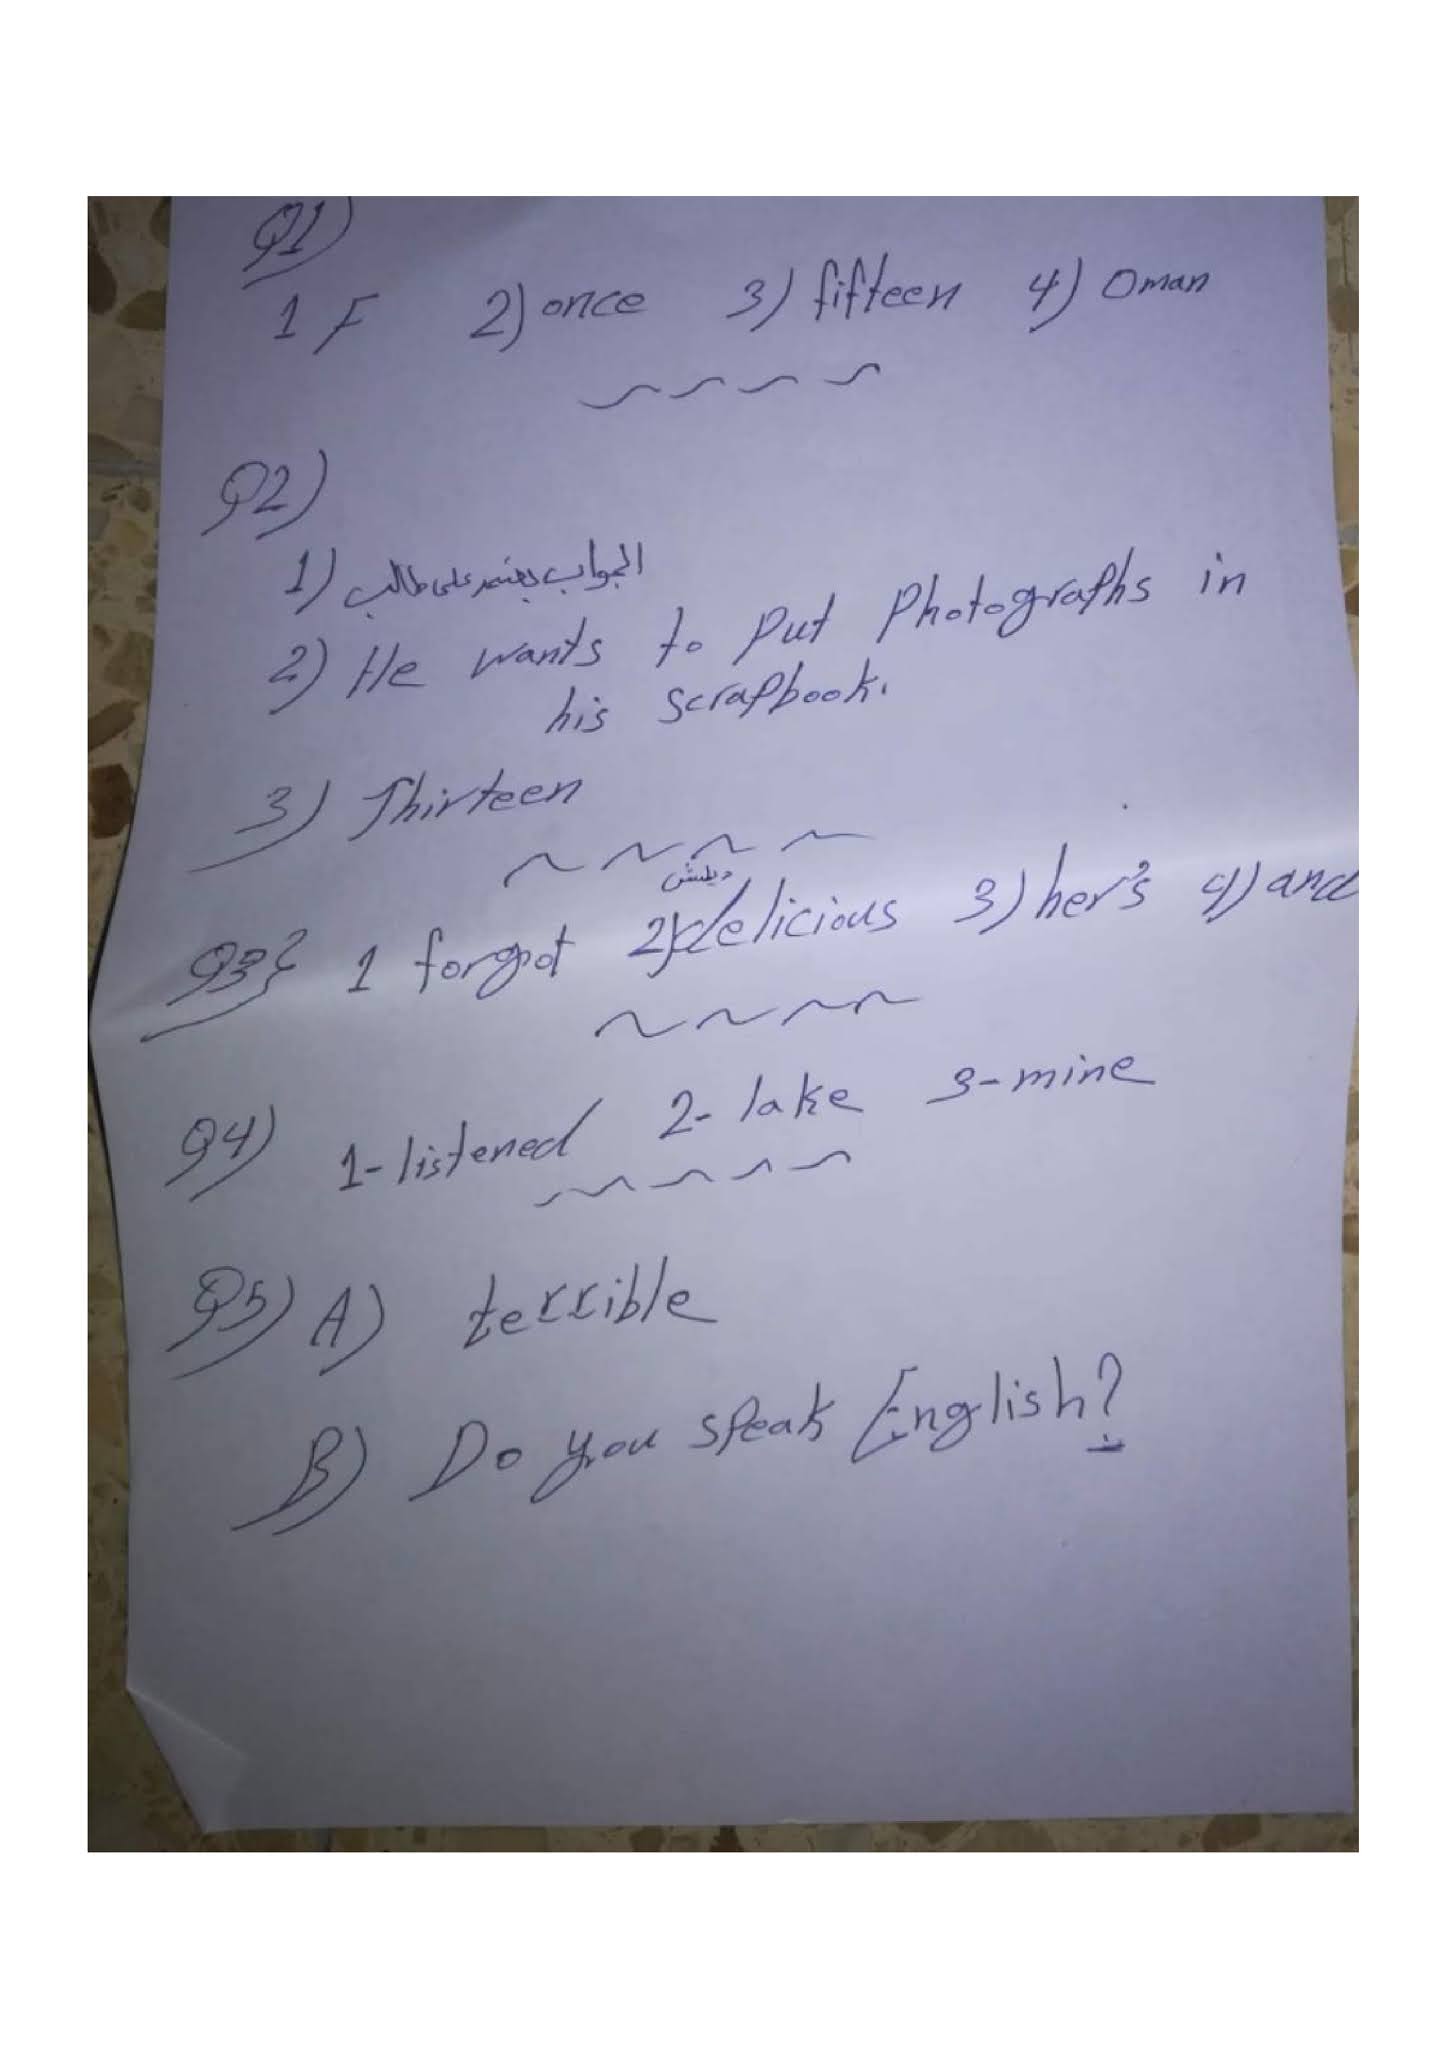 Q1)
1 F 2) once 3) fifteen 4) Oman
Q2)
1) الجواب يعتمد على طالب
2) He wants to Put Photographs in
his scrapbook.
3) Thirteen
Q3} 1 forgot 2) delicious 3) her's 4) and
Q4) 1-listened 2- lake 3-mine
Q5) A) terrible
B) Do you speak English?